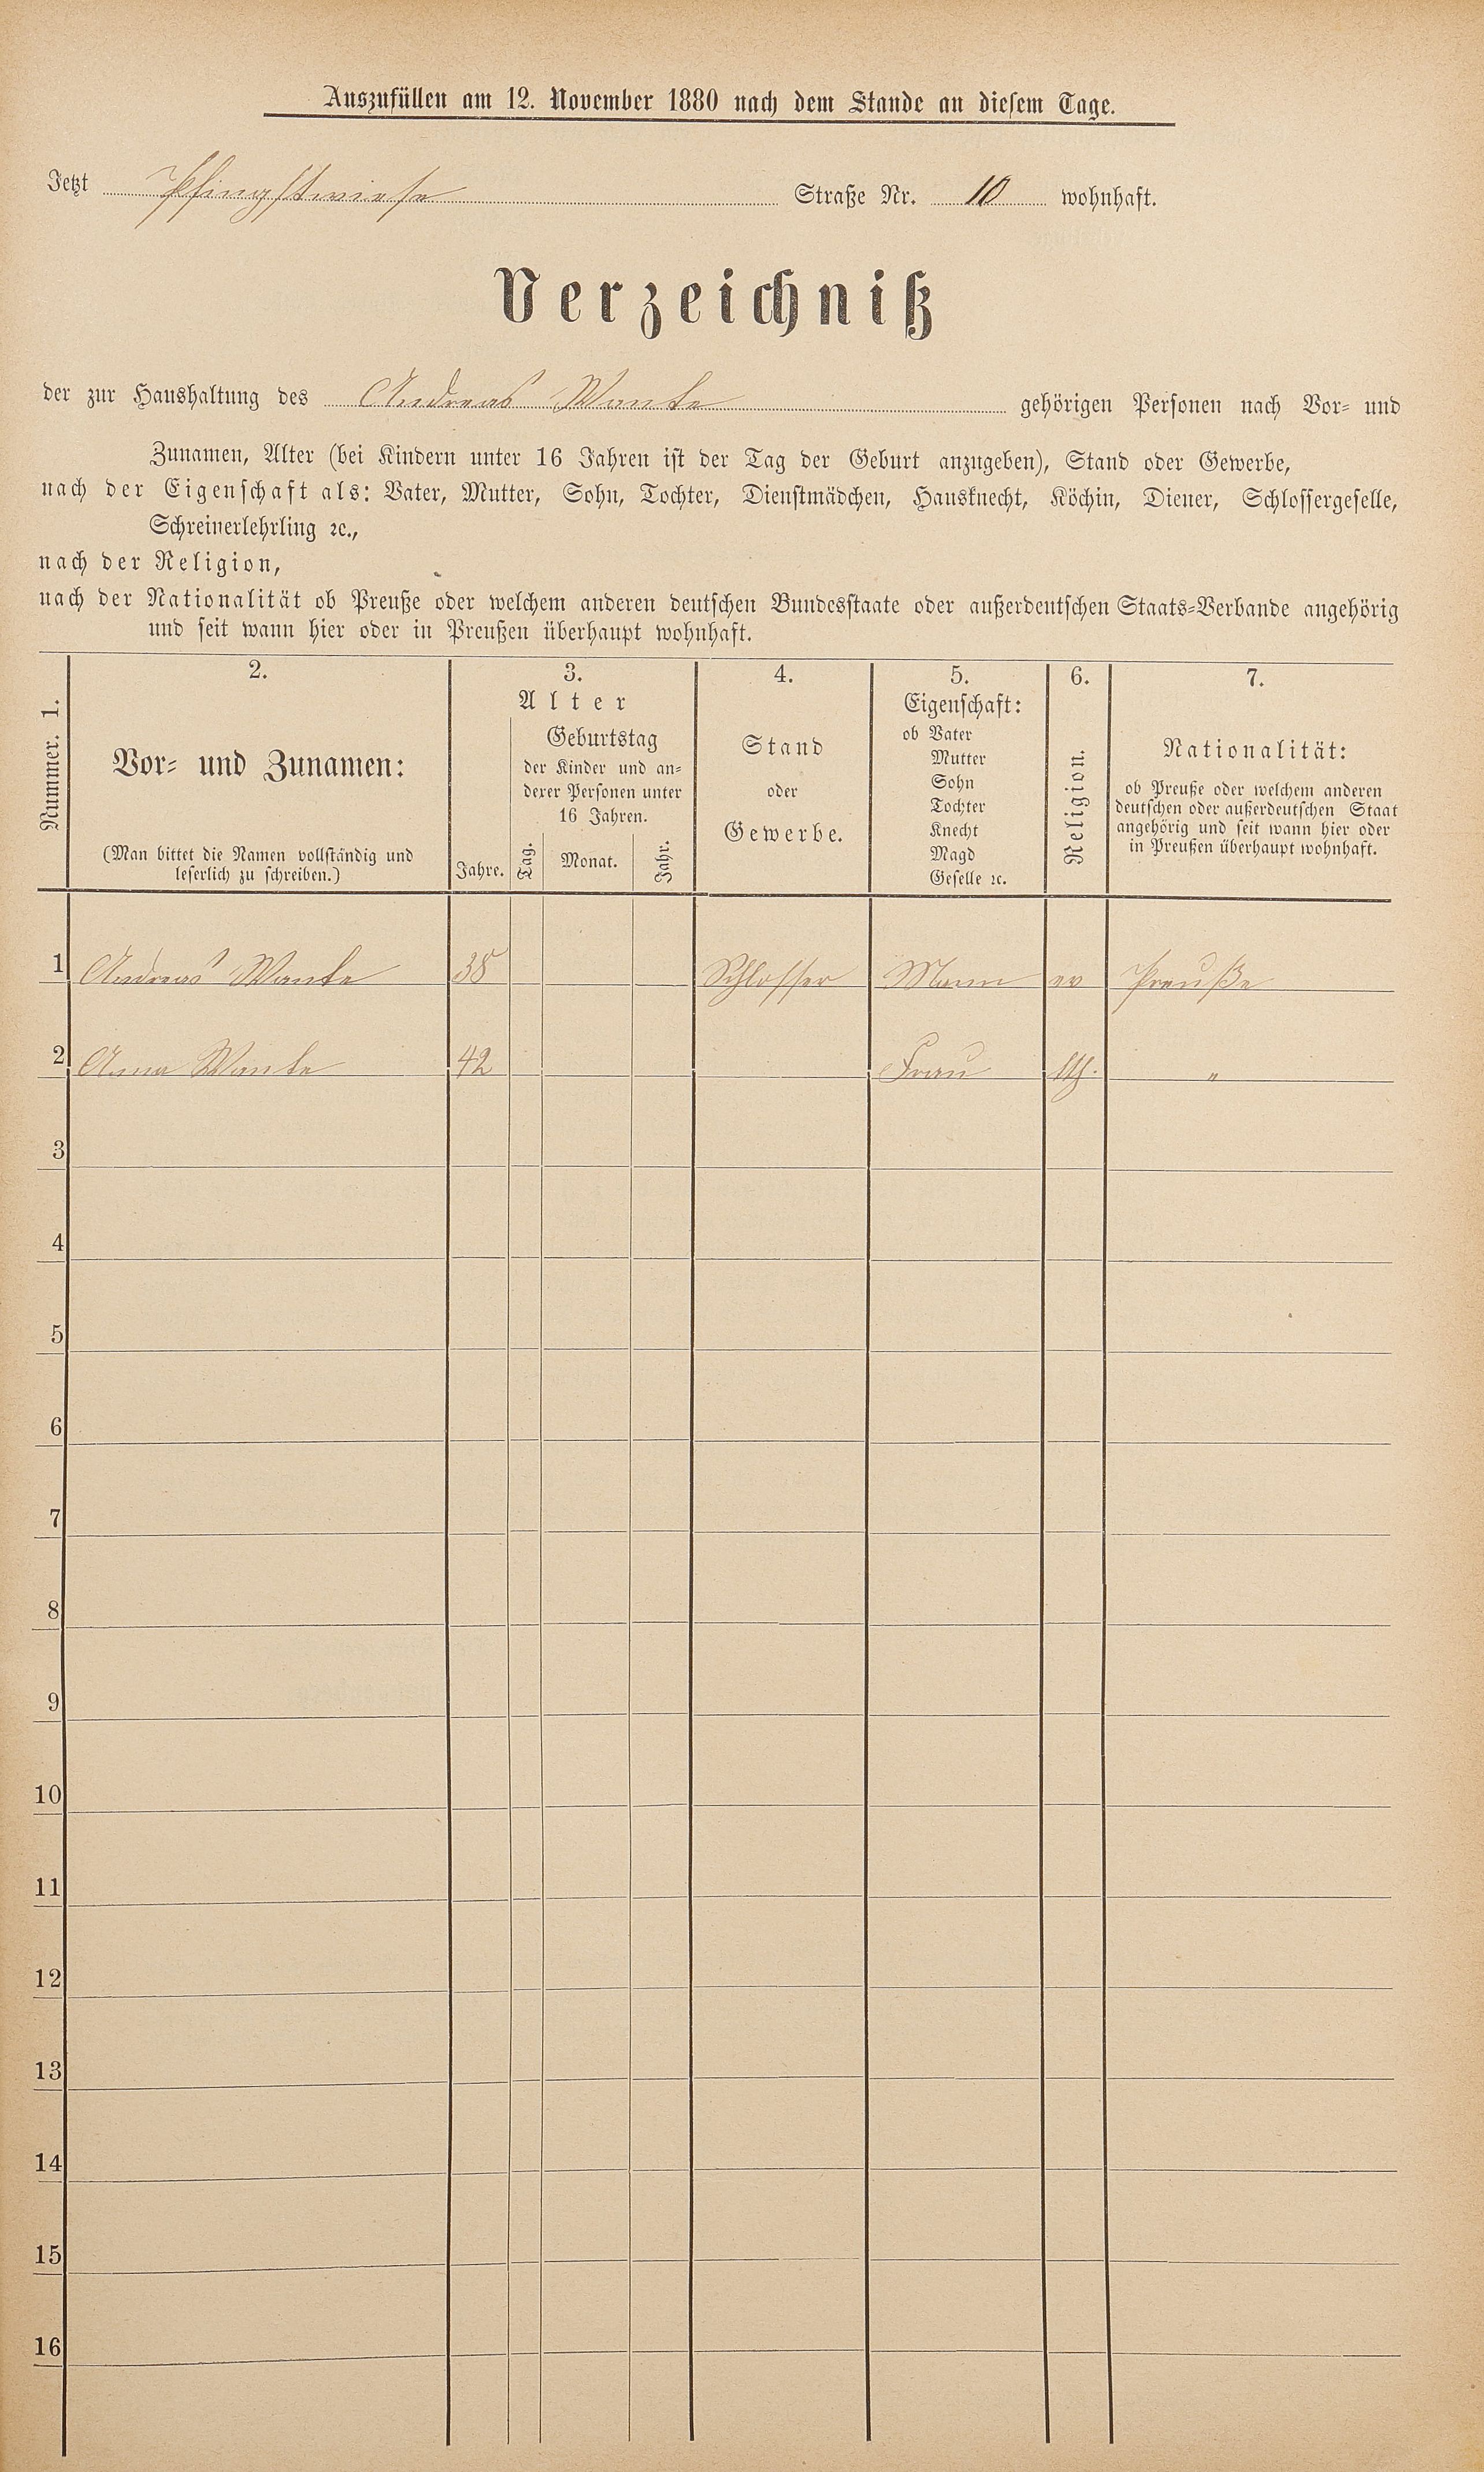 Auszufüllen am 12. November 1880 nach dem Stande an diesem Tage.
Jetzt Pfingstwiese Straße Nr. 10 wohnhaft.
Verzeichniß
der zur Haushaltung des Andreas Wanke gehörigen Personen nach Vor- und
Zunamen, Alter (bei Kindern unter 16 Jahren ist der Tag der Geburt anzugeben), Stand oder Gewerbe,
nach der Eigenschaft als: Vater, Mutter, Sohn, Tochter, Dienstmädchen, Hausknecht, Köchin, Diener, Schlossergeselle,
Schreinerlehrling ꝛc.,
nach der Religion,
nach der Nationalität ob Preuße oder welchem anderen deutschen Bundesstaate oder außerdeutschen Staats-Verbande angehörig
und seit wann hier oder in Preußen überhaupt wohnhaft.
Nummer. 1.
2.
Vor- und Zunamen:
(Man bittet die Namen vollständig und
leserlich zu schreiben.)
3.
Alter
Jahre.
Geburtstag
der Kinder und an-
derer Personen unter
16 Jahren.
Tag.
Monat.
Jahr.
4.
Stand
oder
Gewerbe.
5.
Eigenschaft:
ob Vater
Mutter
Sohn
Tochter
Knecht
Magd
Geselle ꝛc.
6.
Religion.
7.
Nationalität:
ob Preuße oder welchem anderen
deutschen oder außerdeutschen Staat
angehörig und seit wann hier oder
in Preußen überhaupt wohnhaft.
1 Andreas Wanke 38 Schlosser Mann ev Preuße
2 Anna Wanke 42 Frau "
3
4
5
6
7
8
9
10
11
12
13
14
15
16